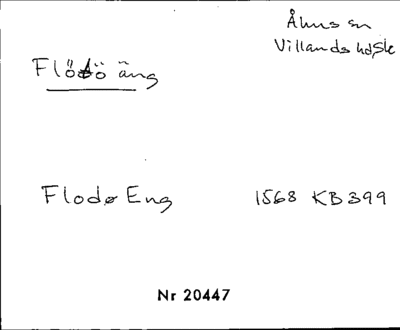 Åhus sn
Villands hd, Sk
Flötö äng
Flodø Eng 1568 KB 399
Nr 20447